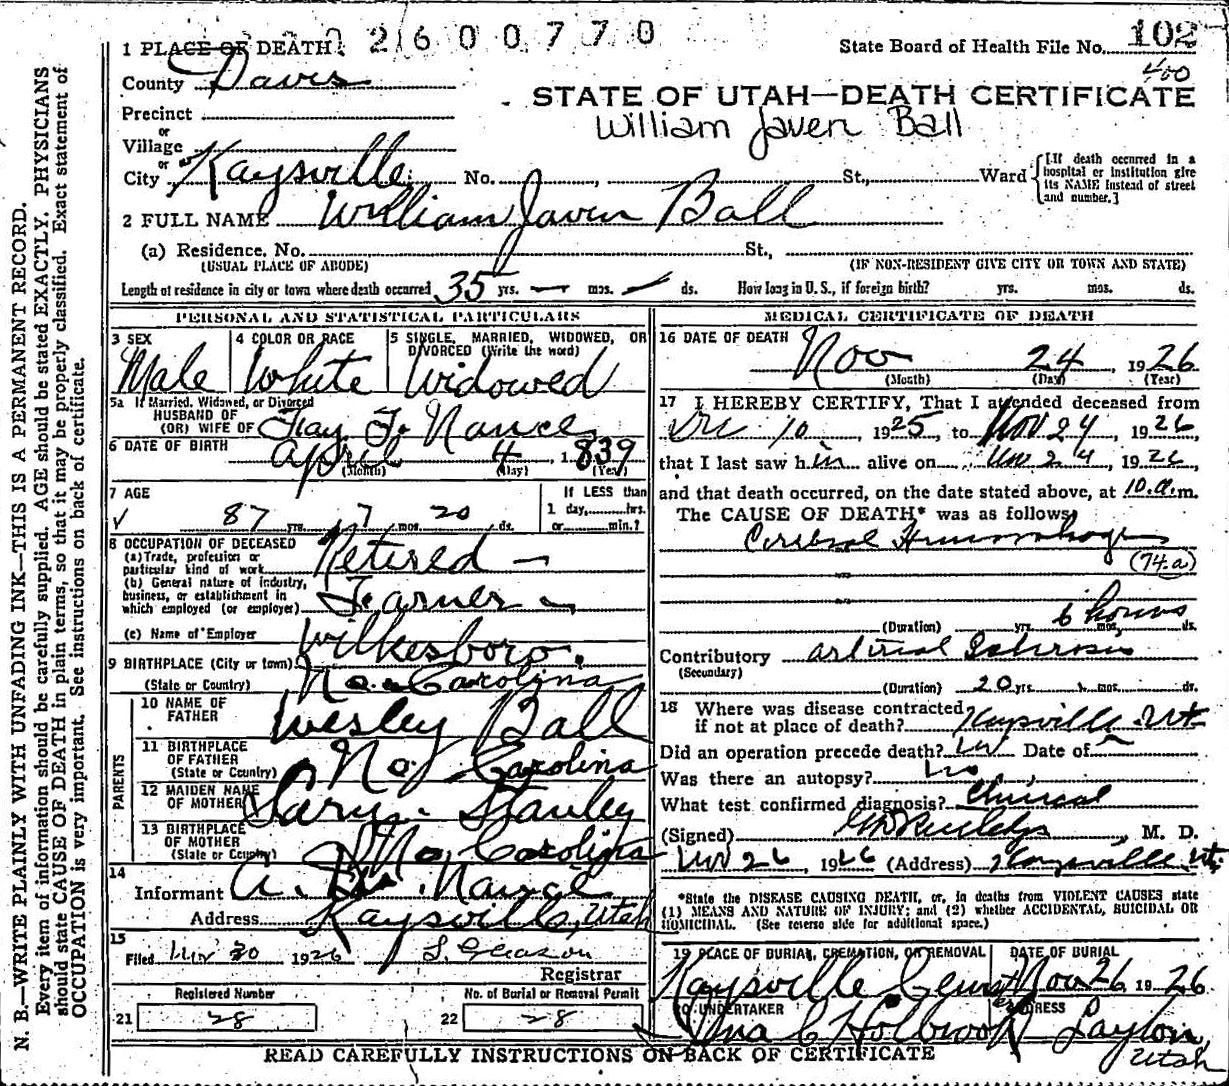 0 2 6 0 0 7 7 0
1 PLACE OF DEATH
State Board of Health File No. 102
400
County Davis
STATE OF UTAH—DEATH CERTIFICATE
William Javen Ball
Precinct
or
Village
or
City Kaysville No. , St., Ward
[If death occurred in a hospital or institution give its NAME instead of street and number.]
2 FULL NAME William Javen Ball
(a) Residence. No. St.,
(USUAL PLACE OF ABODE) (IF NON-RESIDENT GIVE CITY OR TOWN AND STATE)
Length of residence in city or town where death occurred 35 yrs. — mos. — ds. How long in U. S., if foreign birth? yrs. mos. ds.
PERSONAL AND STATISTICAL PARTICULARS
3 SEX Male
4 COLOR OR RACE White
5 SINGLE, MARRIED, WIDOWED, OR DIVORCED (Write the word) Widowed
5a If Married, Widowed, or Divorced
HUSBAND OF
(OR) WIFE OF Fay F. Nance
6 DATE OF BIRTH April 4, 1839
(Month) (Day) (Year)
7 AGE 87 yrs. 7 mos. 20 ds.
If LESS than 1 day, hrs. or min.?
8 OCCUPATION OF DECEASED
(a) Trade, profession or particular kind of work Retired —
(b) General nature of industry, business, or establishment in which employed (or employer) Farmer
(c) Name of Employer
9 BIRTHPLACE (City or town) Wilkesboro.
(State or Country) No. Carolina
PARENTS
10 NAME OF FATHER Wesley Ball
11 BIRTHPLACE OF FATHER (State or Country) No. Carolina
12 MAIDEN NAME OF MOTHER Stanley
13 BIRTHPLACE OF MOTHER (State or Country) No. Carolina
14
Informant A. Nance
Address Kaysville, Utah
15
Filed Nov 30 1926 L. Gleason
Registrar
Registered Number
21 28
No. of Burial or Removal Permit
22 28
MEDICAL CERTIFICATE OF DEATH
16 DATE OF DEATH Nov 24 1926
(Month) (Day) (Year)
17 I HEREBY CERTIFY, That I attended deceased from
Dec 10, 1925, to Nov 24, 1926,
that I last saw him alive on Nov 24, 1926,
and that death occurred, on the date stated above, at 10.a.m.
The CAUSE OF DEATH* was as follows:
Cerebral Hemorrhage
(74.a)
(Duration) yrs. 6 hours mos. ds.
Contributory arterial Sclerosis
(Secondary)
(Duration) 20 yrs. mos. ds.
18 Where was disease contracted
if not at place of death? Kaysville Ut
Did an operation precede death? no Date of
Was there an autopsy? no
What test confirmed diagnosis? Clinical
(Signed) , M. D.
Nov 26, 1926 (Address) Kaysville Ut
*State the DISEASE CAUSING DEATH, or, in deaths from VIOLENT CAUSES state (1) MEANS AND NATURE OF INJURY; and (2) whether ACCIDENTAL, SUICIDAL OR HOMICIDAL. (See reverse side for additional space.)
19 PLACE OF BURIAL, CREMATION, OR REMOVAL DATE OF BURIAL
Kaysville Nov 26 1926
20 UNDERTAKER ADDRESS
Holbrook Layton, Utah
READ CAREFULLY INSTRUCTIONS ON BACK OF CERTIFICATE
N. B.—WRITE PLAINLY WITH UNFADING INK—THIS IS A PERMANENT RECORD.
Every item of information should be carefully supplied. AGE should be stated EXACTLY. PHYSICIANS
should state CAUSE OF DEATH in plain terms, so that it may be properly classified. Exact statement of
OCCUPATION is very important. See instructions on back of certificate.